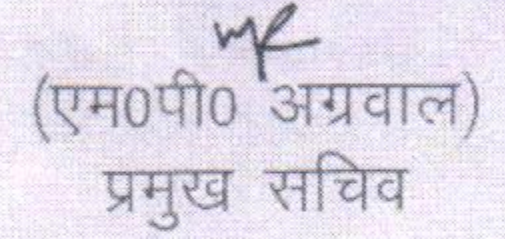 (एम0पी0 अग्रवाल)
प्रमुख सचिव